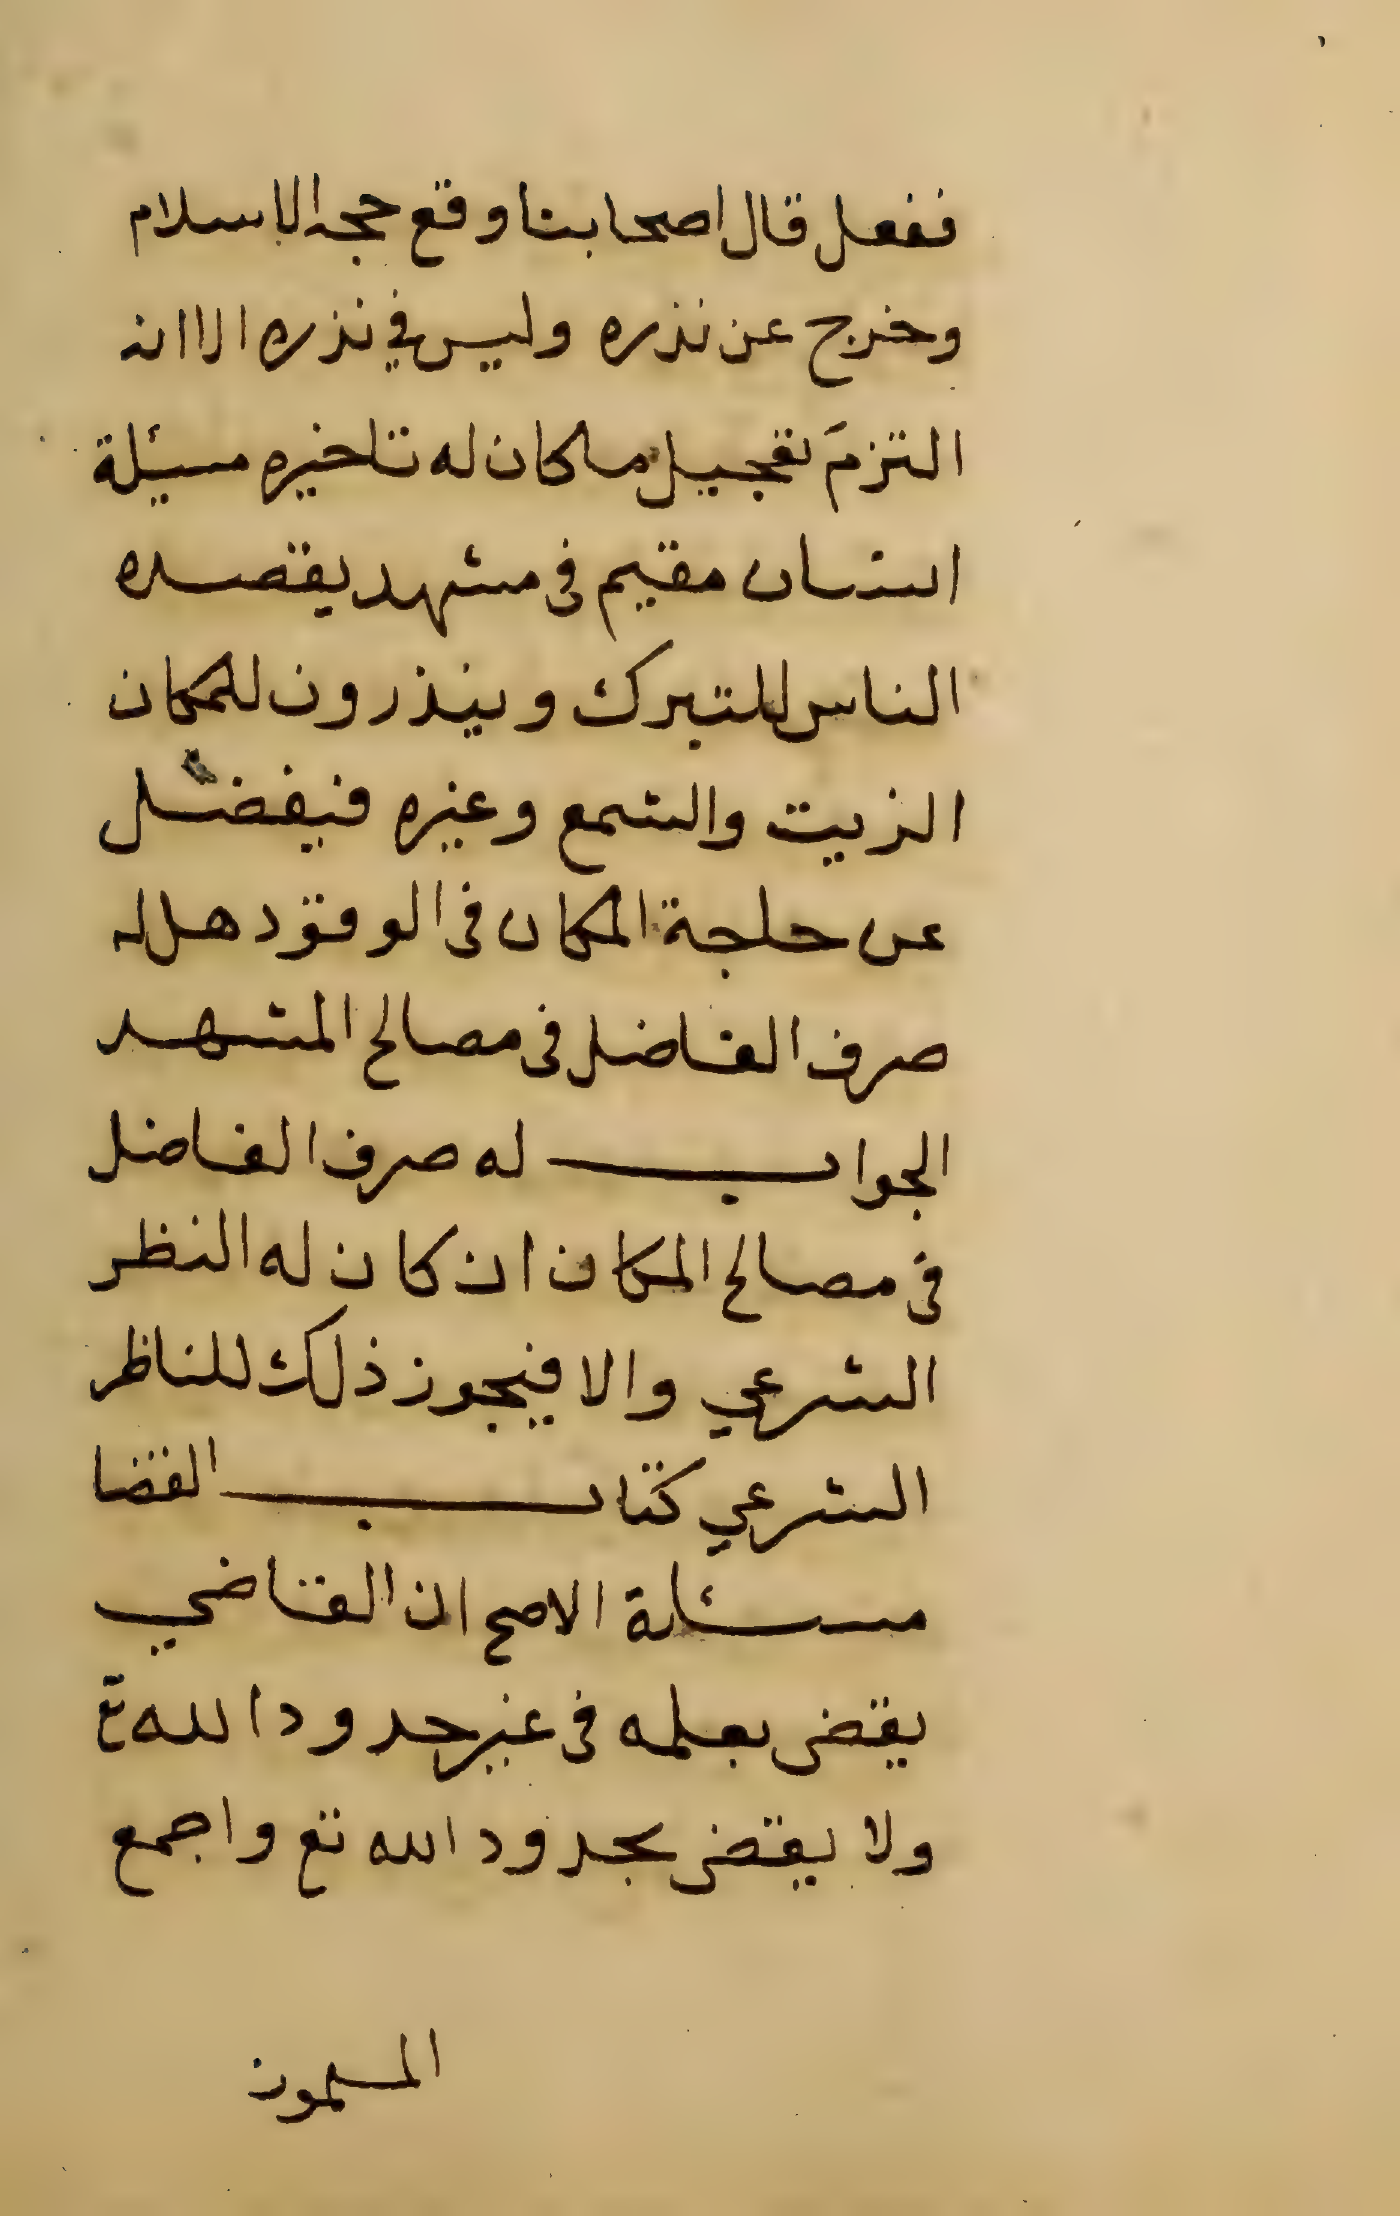 ففعل قال اصحابنا وقع حجه الاسلام
وخرج عن نذره وليس في نذره الا انه
التزم تعجيل ما كان له تاخيره مسئلة
انسان مقيم في مشهد يقصده
الناس للتبرك وينذرون للمكان
الزيت والشمع وغيره فيفضل
عن حاجة المكان في الوقود هل له
صرف الفاضل في مصالح المشهد
الجواب له صرف الفاضل
في مصالح المكان ان كان له النظر
الشرعي والا فيجوز ذلك للناظر
الشرعي كتاب القضا
مسئلة الاصح ان القاضي
يقضى بعلمه في غير حدود الله تع
ولا يقضى بحدود الله تع واجمع
المسلمون